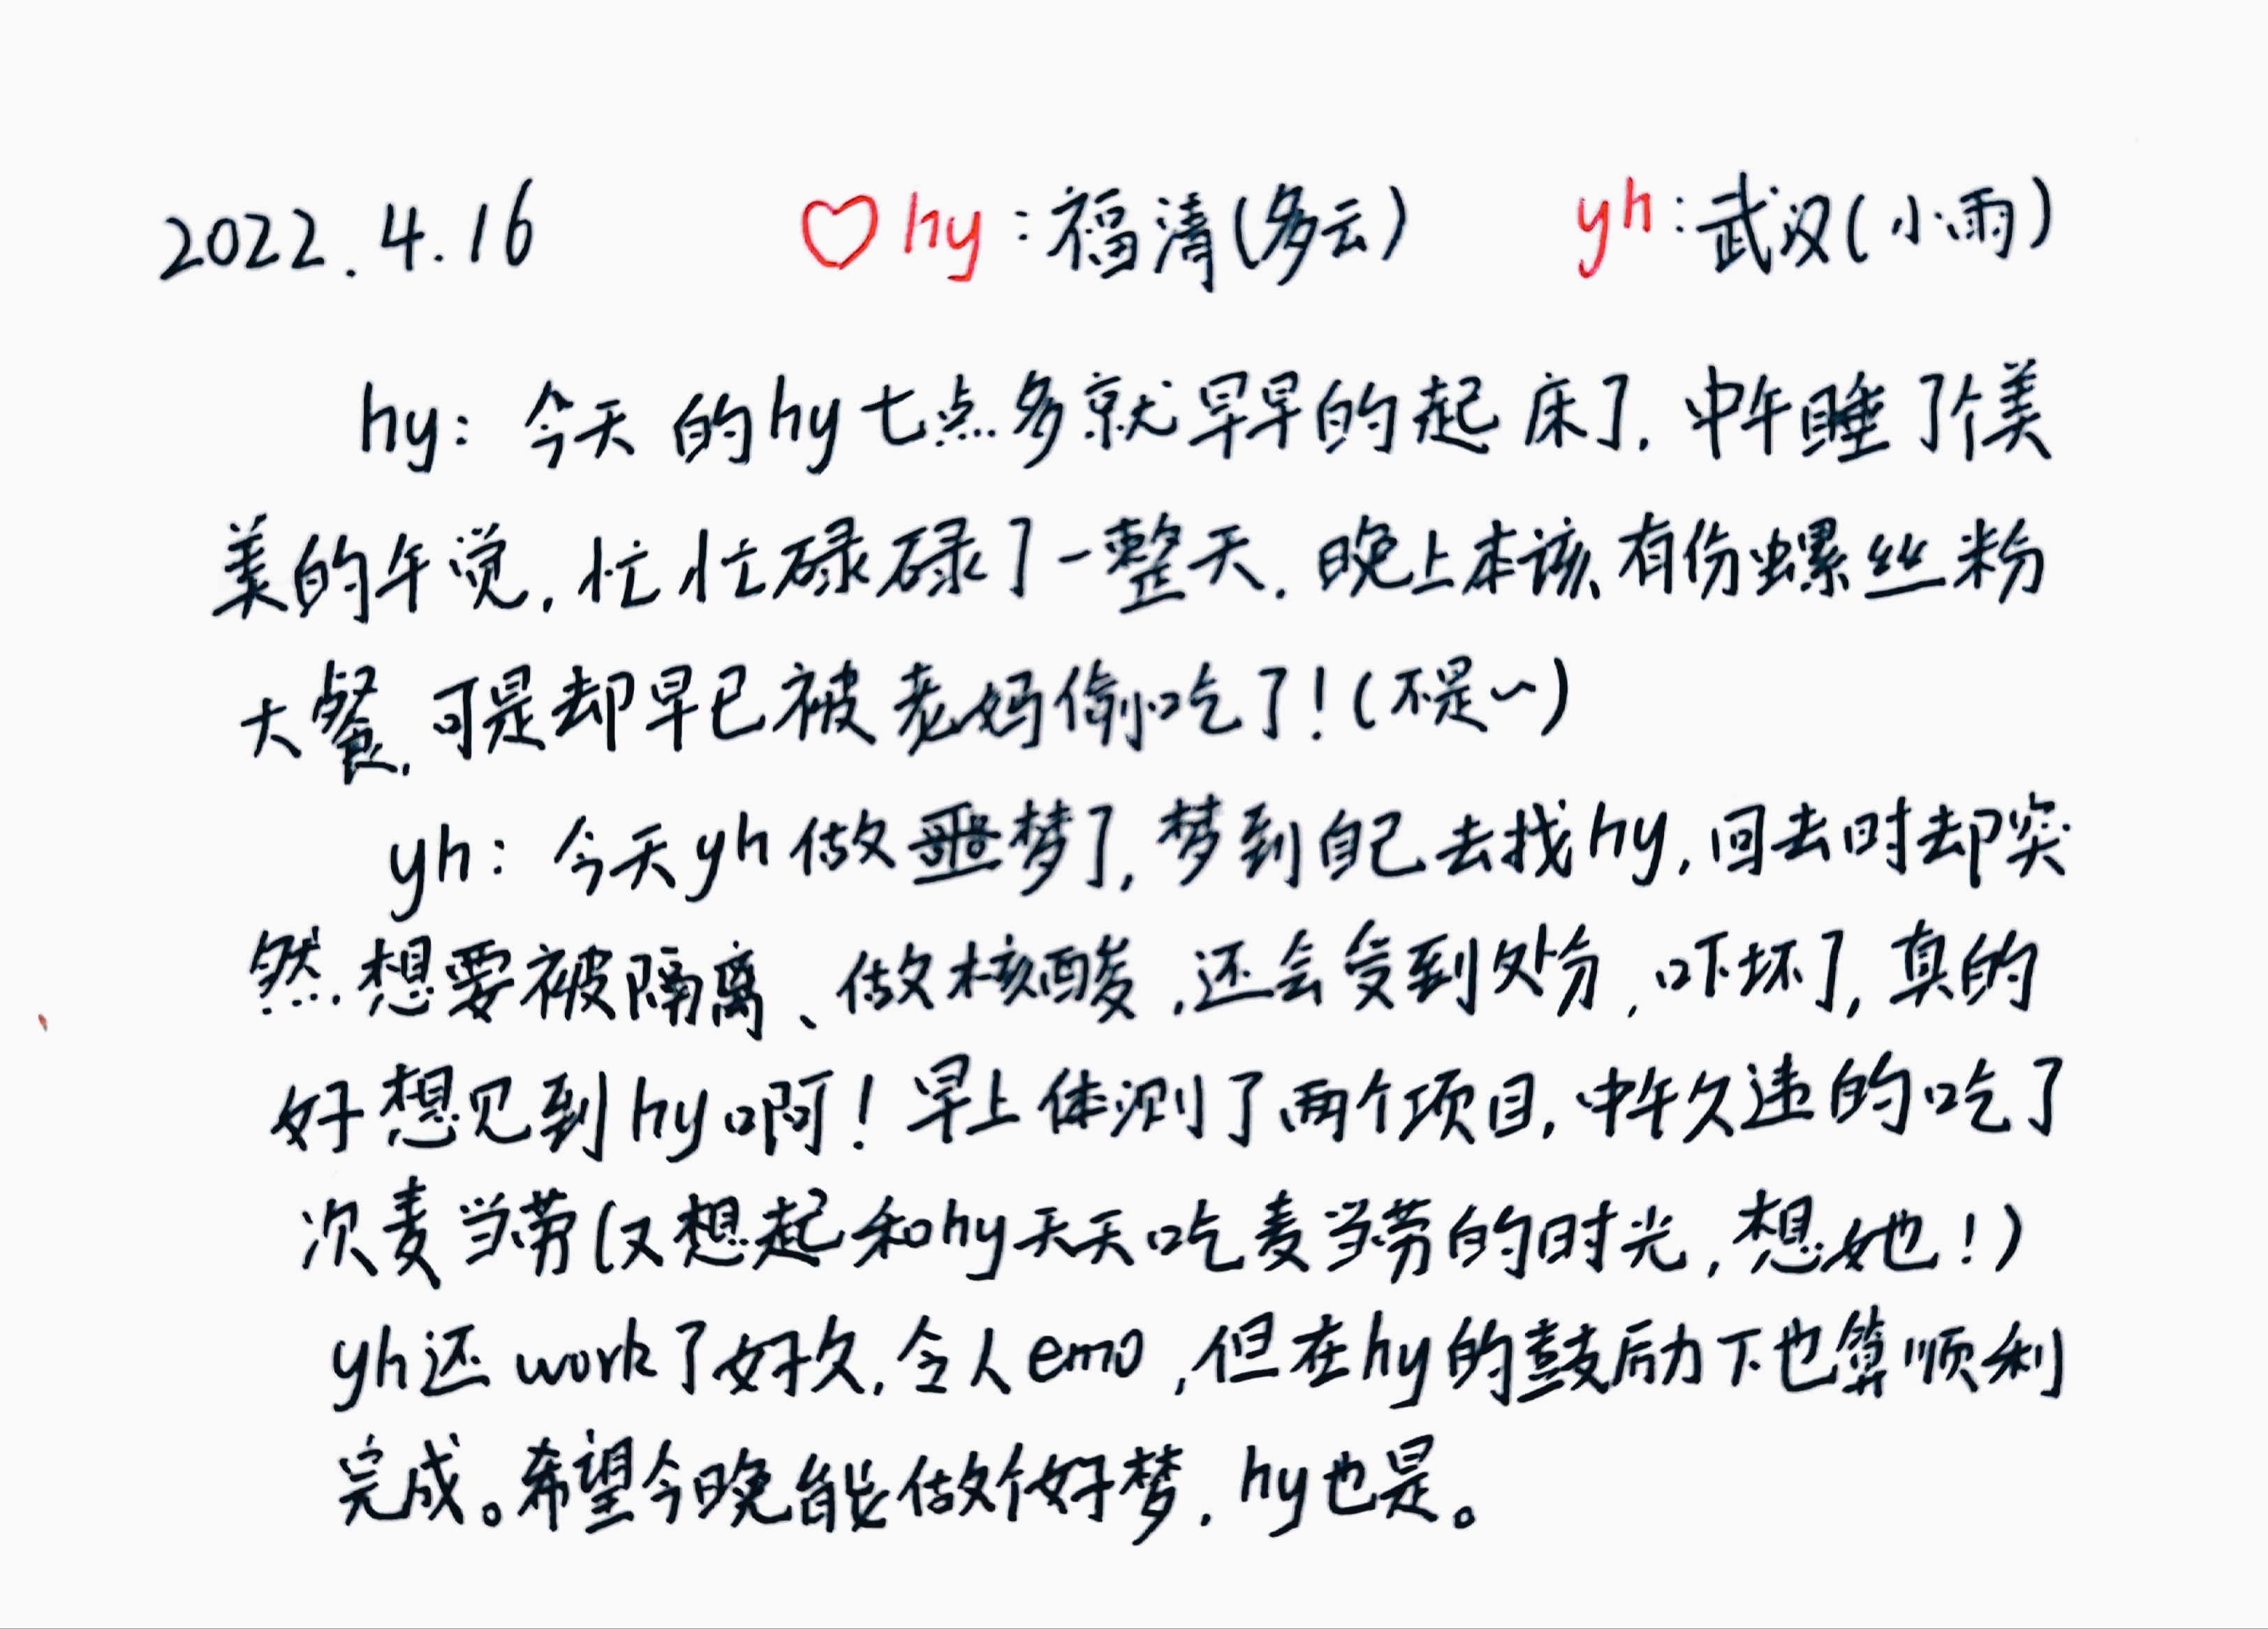 2022.4.16 ♡hy:福清(多云) yh:武汉(小雨)
hy: 今天的hy七点多就早早的起床了,中午睡了个美
美的午觉,忙忙碌碌了一整天.晚上本该有份螺丝粉
大餐,可是却早已被老妈偷吃了!(不是~)
yh: 今天yh做噩梦了,梦到自己去找hy,回去时却突
然想要被隔离、做核酸,还会受到处分,吓坏了,真的
好想见到hy啊!早上体测了两个项目,中午久违的吃了
次麦当劳(又想起和hy天天吃麦当劳的时光,想她!)
yh还work了好久,令人emo,但在hy的鼓励下也算顺利
完成。希望今晚能做个好梦,hy也是。